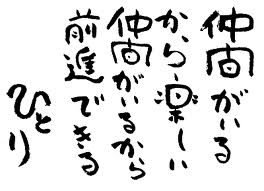 仲間がいる
から楽しい
仲間がいるから
前進できる
ひとり